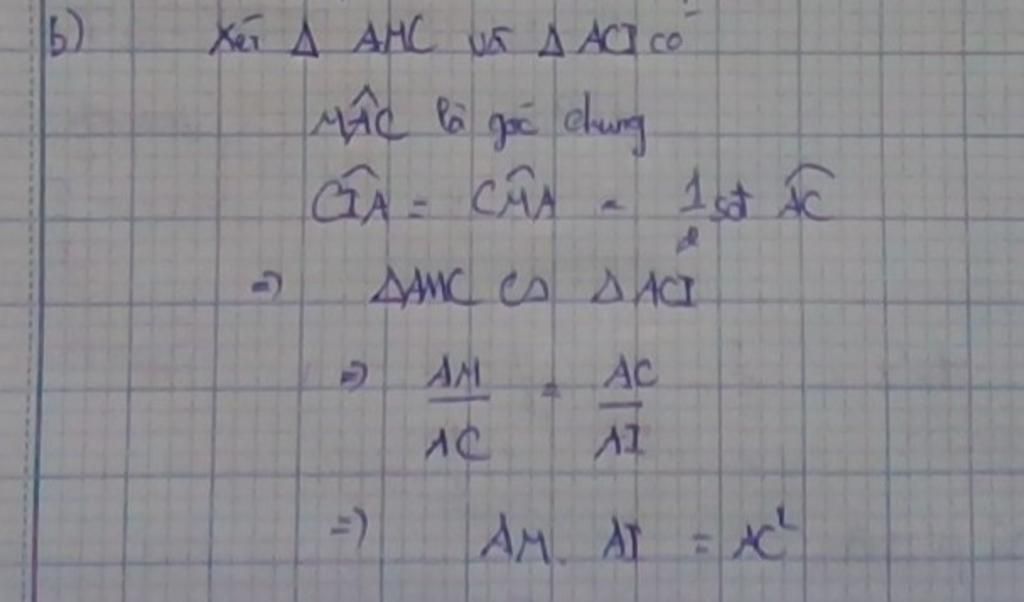 b) Xét Δ AMC và Δ ACI có
MÂC là góc chung
CÎA = CM̂A = 1/2 sđ A͡C
=> ΔAMC ∽ Δ ACI
=> AM/AC = AC/AI
=> AM. AI = AC²